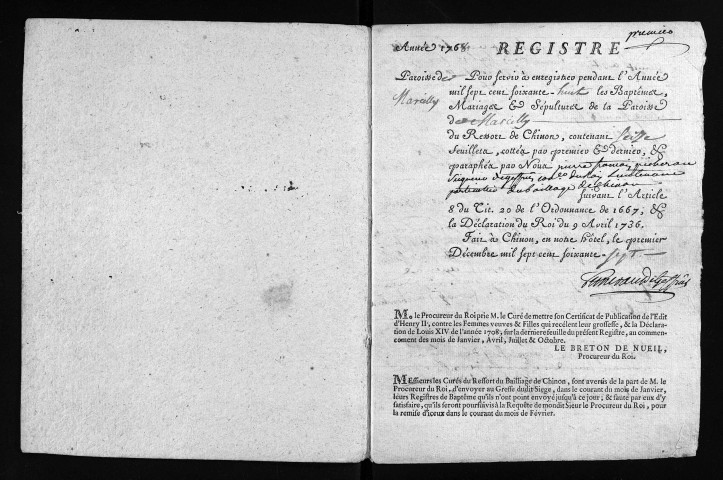 premier
Année 1768. REGISTRE
Paroisse de Pour servir à enregistrer pendant l'Année
Marcilly mil sept cent soixante-huit les Baptêmes,
Mariages & Sépultures de la Paroisse
de Marcilly
du Ressort de Chinon, contenant seisse
feuillets, cottés par premier & dernier, &
paraphés par Nous pierre francois
Lieutenant
particulier du bailliage de Chinon
suivant l'Article
8 du Tit. 20 de l'Ordonnance de 1667, &
la Déclaration du Roi du 9 Avril 1736.
Fait à Chinon, en notre hôtel, le premier
Décembre mil sept cent soixante-sept
M. le Procureur du Roi prie M. le Curé de mettre son Certificat de Publication de l'Edit
d'Henry II, contre les Femmes veuves & Filles qui recélent leur grossesse, & la Déclara-
tion de Louis XIV de l'année 1708, sur la derniere feuille du présent Registre, au commen-
cement des mois de Janvier, Avril, Juillet & Octobre.
LE BRETON DE NUEIL,
Procureur du Roi.
MEssieurs les Curés du Ressort du Bailliage de Chinon, sont avertis de la part de M. le
Procureur du Roi, d'envoyer au Greffe dudit Siege, dans le courant du mois de Janvier,
leurs Registres de Baptême qu'ils n'ont point envoyé jusqu'à ce jour; & faute par eux d'y
satisfaire, qu'ils seront poursuivis à la Requête de mondit Sieur le Procureur du Roi, pour
la remise d'iceux dans le courant du mois de Février.